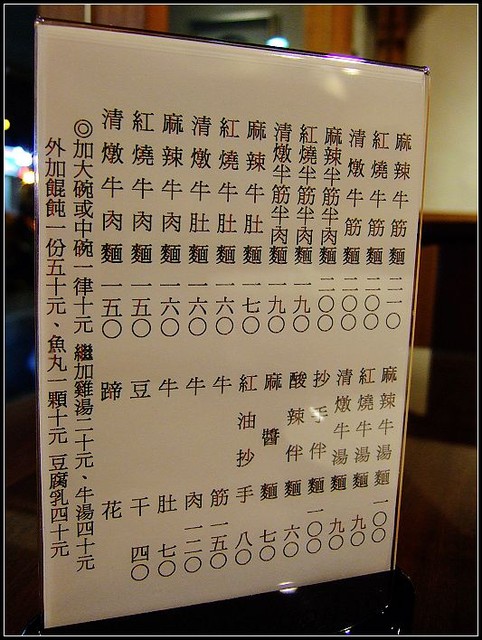 麻辣牛筋麵 二一〇
紅燒牛筋麵 二〇〇
清燉牛筋麵 二〇〇
麻辣半筋半肉麵 二〇〇
紅燒半筋半肉麵 一九〇
清燉半筋半肉麵 一九〇
麻辣牛肚麵 一七〇
紅燒牛肚麵 一六〇
清燉牛肚麵 一六〇
麻辣牛肉麵 一六〇
紅燒牛肉麵 一五〇
清燉牛肉麵 一五〇
麻辣牛湯麵 一〇〇
紅燒牛湯麵 九〇
清燉牛湯麵 九〇
抄手伴麵 一〇〇
酸辣伴麵 六〇
麻醬麵 七〇
紅油抄手 八〇
牛筋 一五〇
牛肉 一二〇
牛肚 七〇
豆干 四〇
蹄花
◎加大碗或中碗一律十元 繼加雞湯二十元、牛湯四十元
外加餛飩一份五十元、魚丸一顆十元 豆腐乳四十元